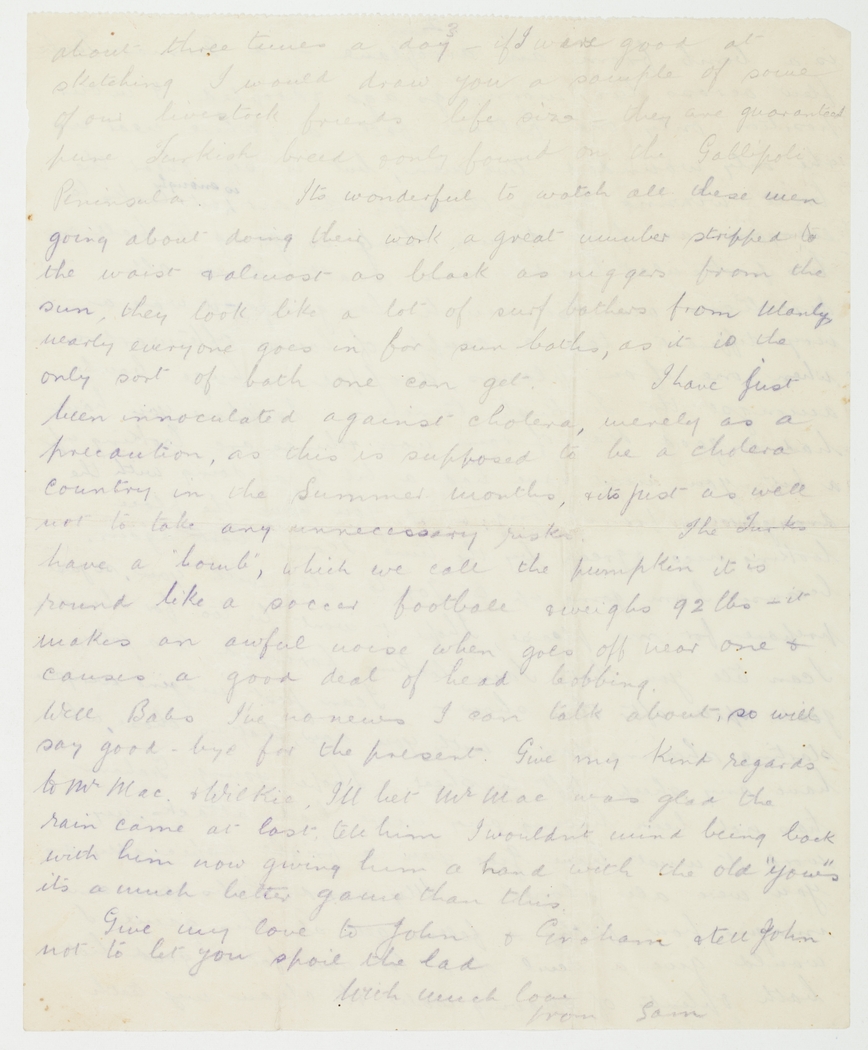 3
about three times a day – if I were good at
sketching I would draw you a sample of some
of our livestock friends life size – they are guaranteed
pure Turkish breed only found on the Gallipoli
Peninsular. Its wonderful to watch all these men
going about doing their work, a great number stripped to
the waist & almost as black as niggers from the
sun, they look like a lot of surf bathers from Manly
nearly everyone goes in for sun baths, as it is the
only sort of bath one can get. I have just
been innoculated against cholera, merely as a
precaution, as this is supposed to be a cholera
country in the Summer months, & its just as well
not to take any unnecessary risks. The Turks
have a 'bomb', which we call the pumpkin it is
round like a soccer football & weighs 92 lbs – it
makes an awful noise when goes off near one &
causes a good deal of head bobbing.
Well Babs I've no news I can talk about, so will
say good-bye for the present. Give my kind regards
to Mr Mac. & Wilkie, I'll bet Mr Mac was glad the
rain came at last. tell him I wouldn't mind being back
with him now giving him a hand with the old "yows"
its a much better game than this.
Give my love to John & Graham & tell John
not to let you spoil the lad
With much love
from Sam